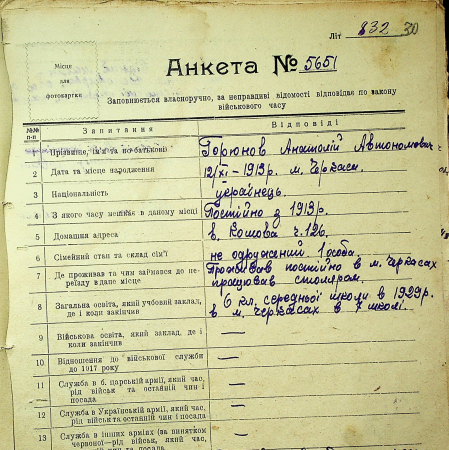 Літ 832 30
Місце
для
фотокартки
Анкета № 5651
Заповнюється власноручно, за неправдиві відомості відповідає по закону
військового часу
№№ п-п Запитання Відповіді
Прізвище, ім'я та по батькові Горюнов Анатолій Автономович
2 Дата та місце народження 12/XI – 1913 р. м. Черкаси.
3 Національність українець.
4 З якого часу мешкає в даному місці Постійно з 1913 р.
5 Домашня адреса в. Кошова ч. 126.
6 Сімейний стан та склад сім'ї не одружений 1 особа.
7 Де проживав та чим займався до переїзду в дане місце Проживав постійно в м. Черкасах
працював столяром.
8 Загальна освіта, який учбовий заклад,
де і коли закінчив 6 кл. середньої школи в 1929 р.
в м. Черкасах в 7 школі.
9 Військова освіта, який заклад, де і
коли закінчив —
10 Відношення до військової служби
до 1917 року —
11 Служба в б. царській армії, який час,
рід військ та останній чин і
посада —
12 Служба в Українській армії, який час,
рід військ та останній чин і посада —
13 Служба в інших арміях (за винятком
червоної—рід військ, який час,
та посада —